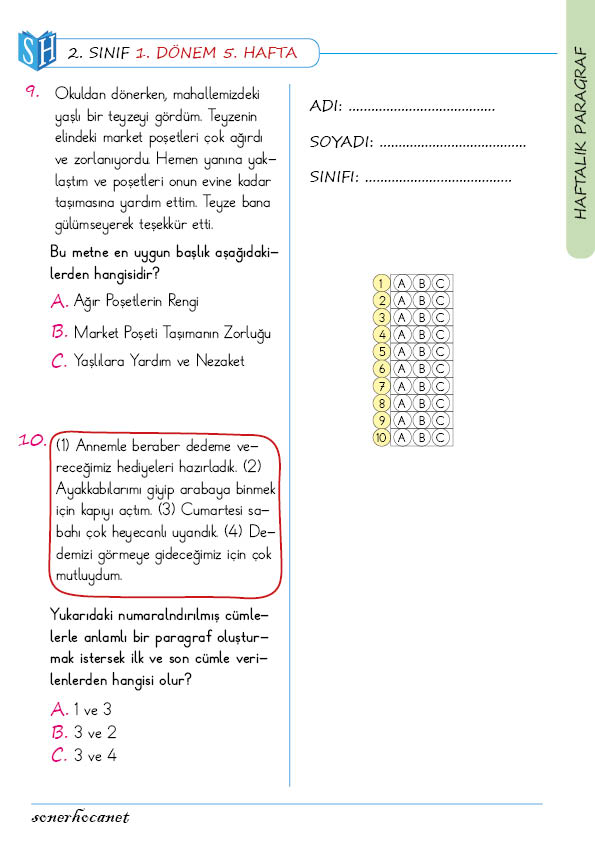 SH
2. SINIF 1. DÖNEM 5. HAFTA
HAFTALIK PARAGRAF
9. Okuldan dönerken, mahallemizdeki
yaşlı bir teyzeyi gördüm. Teyzenin
elindeki market poşetleri çok ağırdı
ve zorlanıyordu. Hemen yanına yak-
laştım ve poşetleri onun evine kadar
taşımasına yardım ettim. Teyze bana
gülümseyerek teşekkür etti.
Bu metne en uygun başlık aşağıdaki-
lerden hangisidir?
A. Ağır Poşetlerin Rengi
B. Market Poşeti Taşımanın Zorluğu
C. Yaşlılara Yardım ve Nezaket
10. (1) Annemle beraber dedeme ve-
receğimiz hediyeleri hazırladık. (2)
Ayakkabılarımı giyip arabaya binmek
için kapıyı açtım. (3) Cumartesi sa-
bahı çok heyecanlı uyandık. (4) De-
demizi görmeye gideceğimiz için çok
mutluydum.
Yukarıdaki numaralndırılmış cümle-
lerle anlamlı bir paragraf oluştur-
mak istersek ilk ve son cümle veri-
lenlerden hangisi olur?
A. 1 ve 3
B. 3 ve 2
C. 3 ve 4
ADI: .......................................
SOYADI: .......................................
SINIFI: .......................................
1 A B C
2 A B C
3 A B C
4 A B C
5 A B C
6 A B C
7 A B C
8 A B C
9 A B C
10 A B C
sonerhocanet